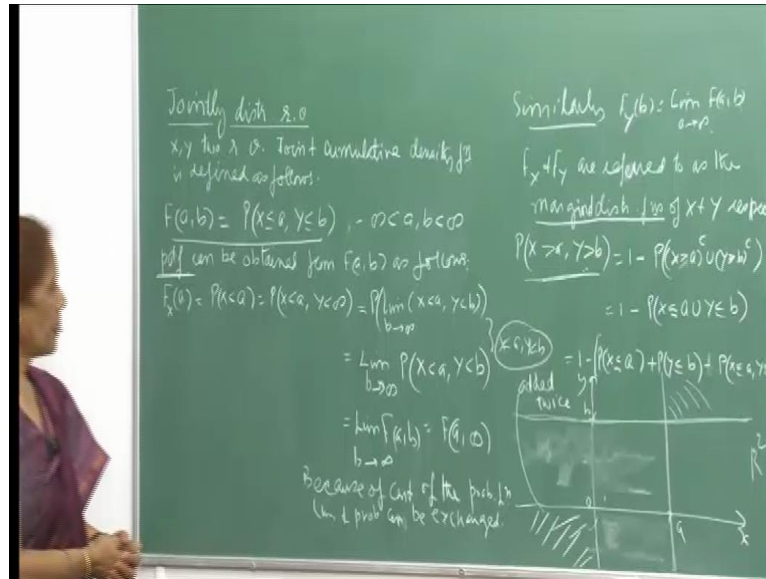 Jointly dist r.v
X, Y two r v. Joint cumulative density fn
is defined as follows.
F(a,b) = P(X≤a, Y≤b), -∞<a,b<∞
pdf can be obtained from F(a,b) as follows.
F_X(a) = P(X<a) = P(X<a, Y<∞) = P(Lim_{b→∞} (X<a, Y<b))
= Lim_{b→∞} P(X<a, Y<b)
= Lim_{b→∞} F(a,b) = F(a,∞)
Because of cont of the prob. fn
Lim & prob can be exchanged.
X≤a, Y≤b
Similarly F_Y(b) = Lim_{a→∞} F(a,b)
F_X & F_Y are referred to as the
marginal dist fns of X & Y
P(X>a, Y>b) = 1 - P((X>a)^c ∪ (Y>b)^c)
= 1 - P(X≤a ∪ Y≤b)
= 1 - [P(X≤a) + P(Y≤b) + P(X≤a, Y≤
added
twice
y
b
0
a
x
R²